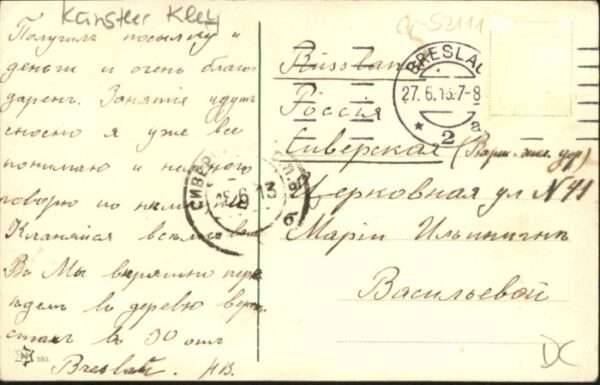 Künstler Kley
Получилъ посылку и
деньги и очень благо
даренъ. Занятія идутъ
сносно я уже все
понимаю и немного
говорю по
Кланяйся всѣмъ
Мы вѣроятно пере
ѣдемъ въ деревню
въ 30
Breslau. НВ.
Russland
Россія
Сиверская (Варш. жел. дор)
Церковная ул № 41
Маріи Ильиничнѣ
Васильевой
BRESLAU
27.6.13.7-8
* 2 a
СИВЕР
6 13
б
DC